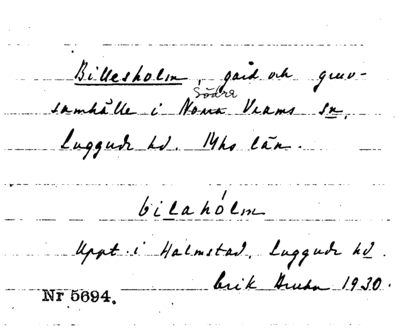 Billesholm, gård och gruv-
Södra
samhälle i Norra Vrams sn,
Luggude hd. Mhs län.
bilahólm
Uppt. i Halmstad, Luggude hd.
Erik 1930.
Nr 5694.